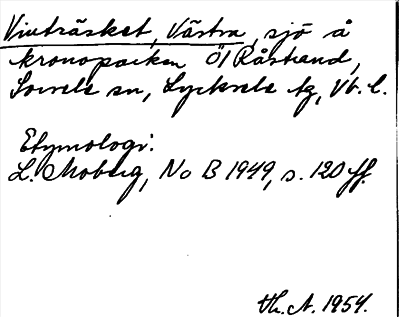 Vinträsket, Västra, sjö å
kronoparken Öl Råstrand,
Sorsele sn, Lycksele tg, Vb. l.
Etymologi:
L. Moberg, No B 1949, s. 120 ff.
Th. A. 1954.